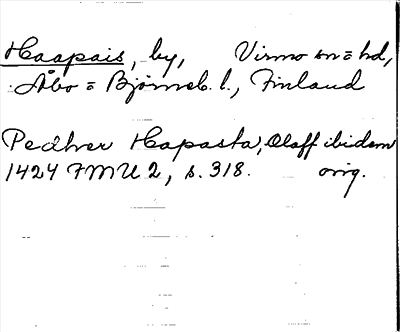 Haapais, by, Virmo sn = hd,
Åbo = Björneb. l., Finland
Pedher Hapasta, Olaff ibidem
1424 FMU 2, s. 318. orig.